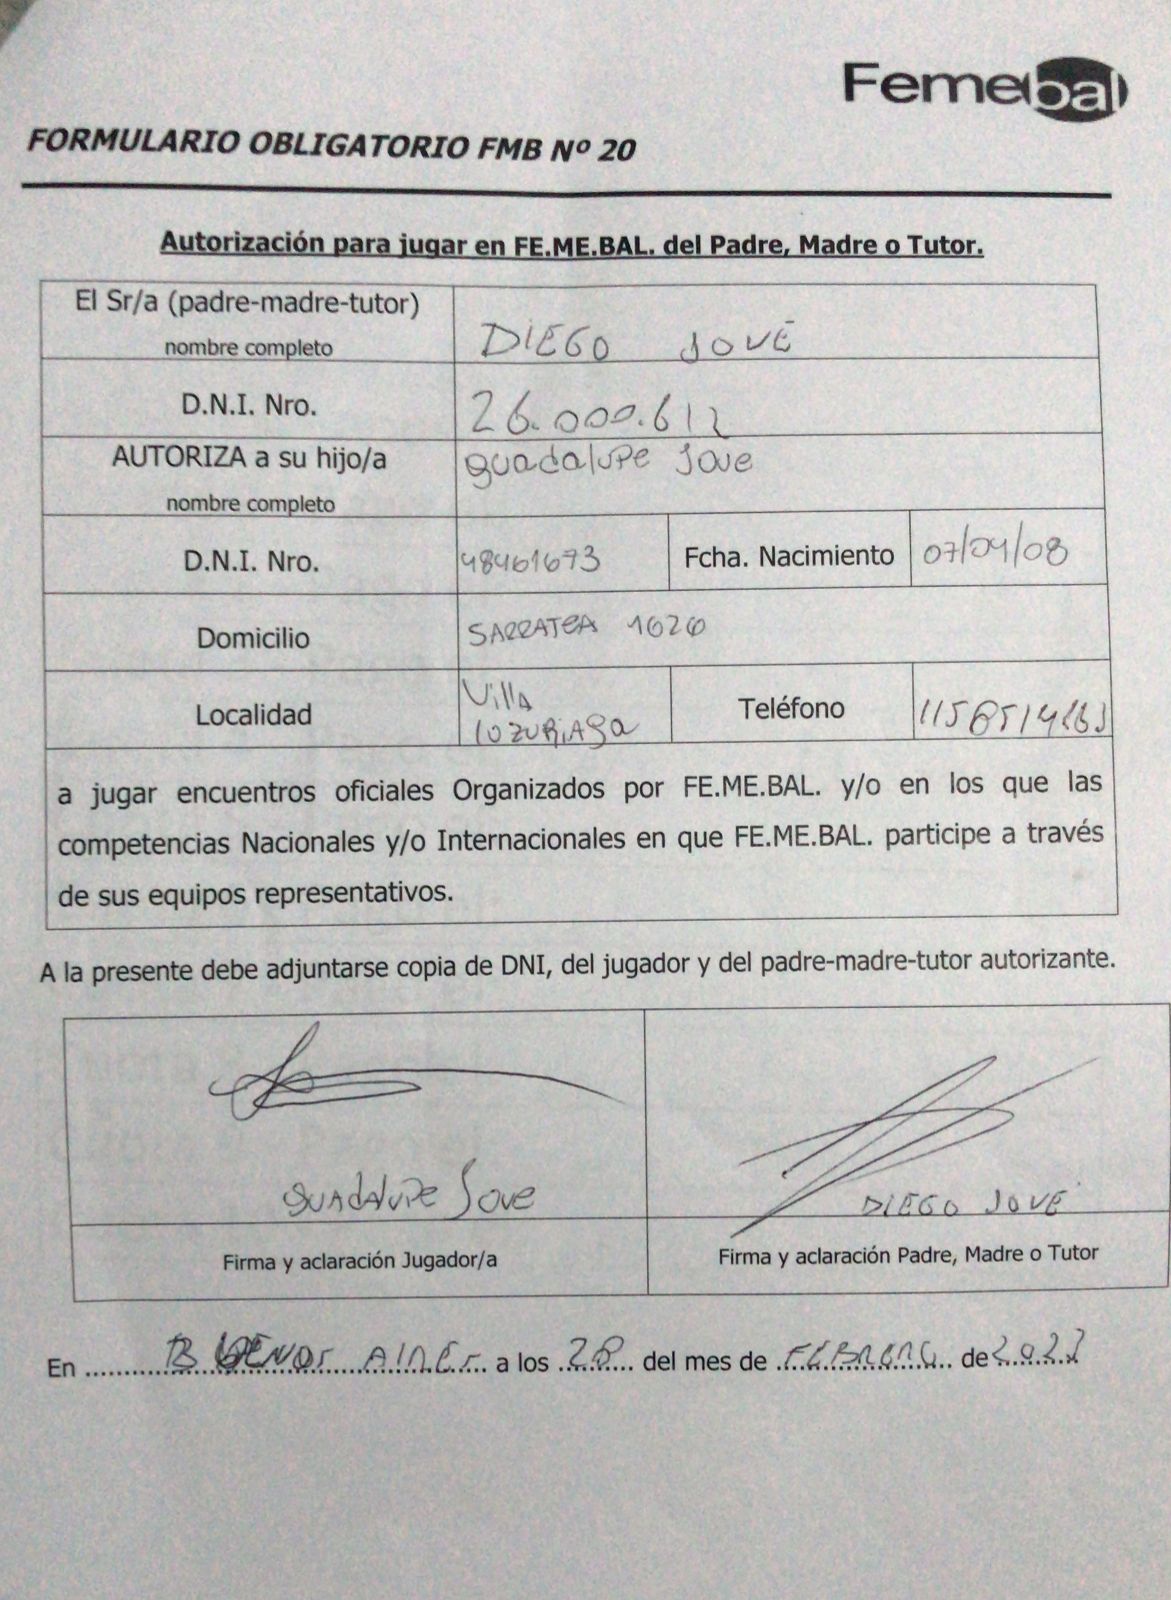 Femebal
FORMULARIO OBLIGATORIO FMB Nº 20
Autorización para jugar en FE.ME.BAL. del Padre, Madre o Tutor.
El Sr/a (padre-madre-tutor)
nombre completo
DIEGO JOVÉ
D.N.I. Nro.
26.000.612
AUTORIZA a su hijo/a
nombre completo
guadalupe Jove
D.N.I. Nro.
48461673
Fcha. Nacimiento
07/04/08
Domicilio
SARRATEA 1626
Localidad
Villa
lozuriaga
Teléfono
a jugar encuentros oficiales Organizados por FE.ME.BAL. y/o en los que las
competencias Nacionales y/o Internacionales en que FE.ME.BAL. participe a través
de sus equipos representativos.
A la presente debe adjuntarse copia de DNI, del jugador y del padre-madre-tutor autorizante.
guadalupe Jove
DIEGO JOVÉ
Firma y aclaración Jugador/a
Firma y aclaración Padre, Madre o Tutor
En BUENOS AIRES a los 28 del mes de FEBRERO de